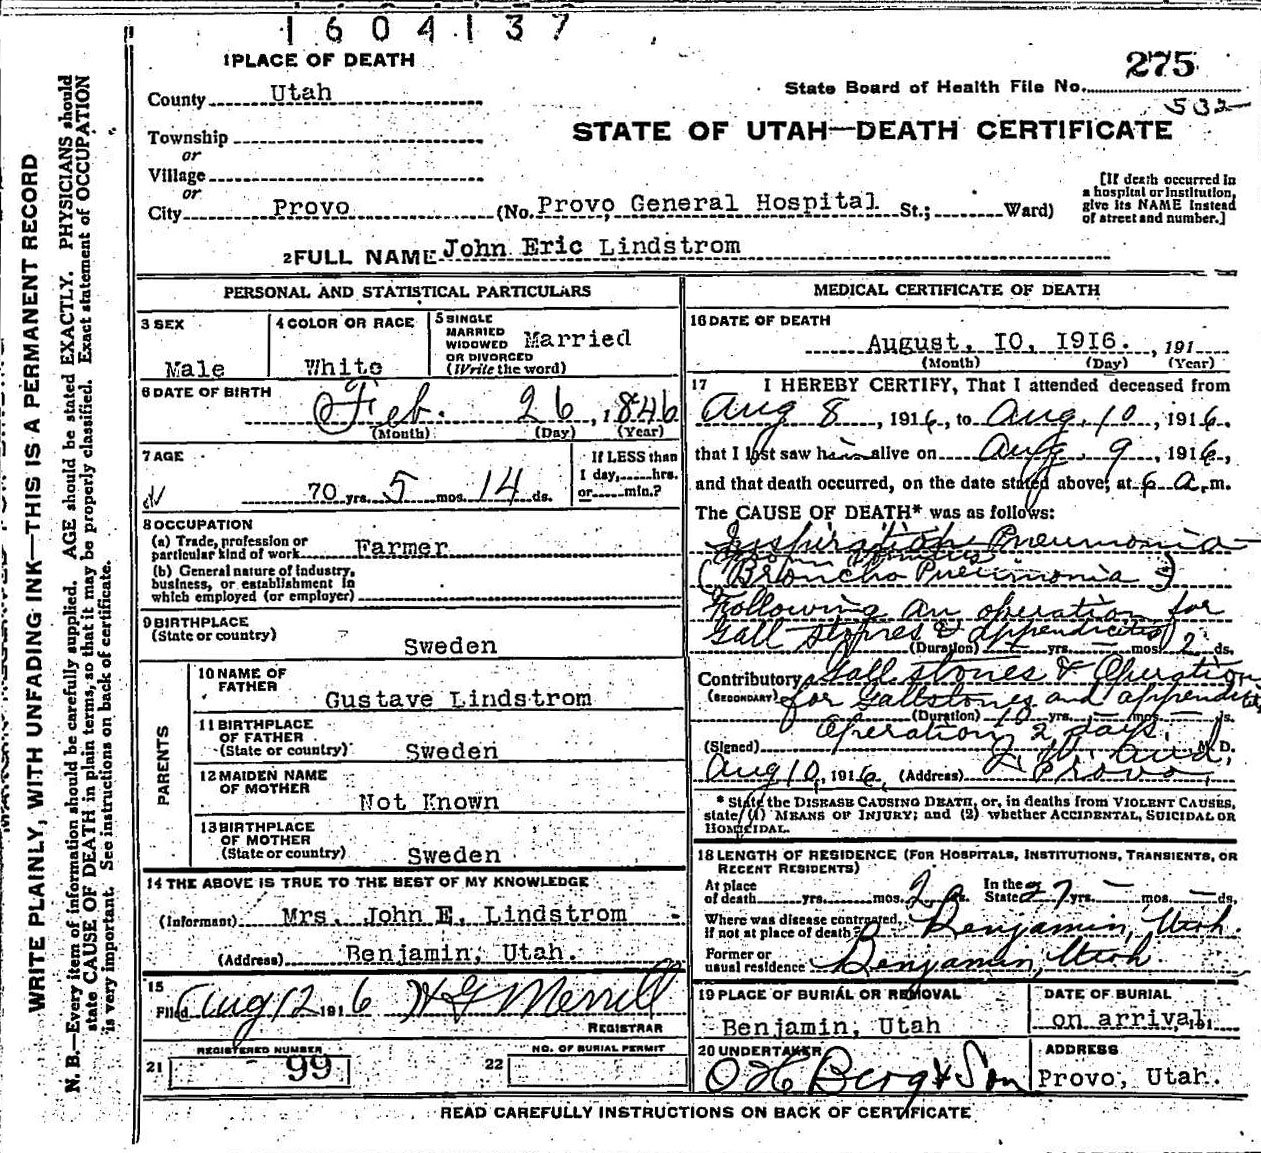 1604137
1 PLACE OF DEATH
275
State Board of Health File No.
532
County Utah
STATE OF UTAH—DEATH CERTIFICATE
Township
or
Village
or
City Provo (No. Provo General Hospital St.; Ward)
[If death occurred in
a hospital or institution,
give its NAME instead
of street and number.]
2 FULL NAME John Eric Lindstrom
PERSONAL AND STATISTICAL PARTICULARS
3 SEX
Male
4 COLOR OR RACE
White
5 SINGLE
MARRIED
WIDOWED
OR DIVORCED
(Write the word)
Married
6 DATE OF BIRTH
Feb. 26, 1846
(Month) (Day) (Year)
7 AGE
70 yrs. 5 mos. 14 ds.
If LESS than
1 day, hrs.
or min.?
8 OCCUPATION
(a) Trade, profession or
particular kind of work Farmer
(b) General nature of industry,
business, or establishment in
which employed (or employer)
9 BIRTHPLACE
(State or country)
Sweden
PARENTS
10 NAME OF
FATHER
Gustave Lindstrom
11 BIRTHPLACE
OF FATHER
(State or country)
Sweden
12 MAIDEN NAME
OF MOTHER
Not Known
13 BIRTHPLACE
OF MOTHER
(State or country)
Sweden
14 THE ABOVE IS TRUE TO THE BEST OF MY KNOWLEDGE
(Informant) Mrs. John E. Lindstrom
(Address) Benjamin, Utah.
15
Filed Aug 12 1916 H G Merrill
REGISTRAR
21
REGISTERED NUMBER
99
22
NO. OF BURIAL PERMIT
MEDICAL CERTIFICATE OF DEATH
16 DATE OF DEATH
August, 10, 1916. , 191
(Month) (Day) (Year)
17 I HEREBY CERTIFY, That I attended deceased from
Aug 8, 1916, to Aug. 10, 1916.
that I last saw him alive on Aug. 9, 1916,
and that death occurred, on the date stated above, at 6 a. m.
The CAUSE OF DEATH* was as follows:
Inspiration Pneumonia
from Vomitus
(Broncho Pneumonia)
Following an operation for
Gall stones & appendicitis
(Duration) yrs. mos. 2 ds.
Contributory Gall stones & Operation
(SECONDARY) for Gallstones and appendicitis
(Duration) 10 yrs. mos. ds.
Operation 2 days.
(Signed) M. D.
Aug 10, 1916 (Address) Provo,
* State the DISEASE CAUSING DEATH, or, in deaths from VIOLENT CAUSES,
state (1) MEANS OF INJURY; and (2) whether ACCIDENTAL, SUICIDAL OR
HOMICIDAL.
18 LENGTH OF RESIDENCE (FOR HOSPITALS, INSTITUTIONS, TRANSIENTS, OR
RECENT RESIDENTS)
At place
of death yrs. mos. 2 ds.
In the
State 27 yrs. mos. ds.
Where was disease contracted,
if not at place of death? Benjamin, Utah.
Former or
usual residence Benjamin, Utah
19 PLACE OF BURIAL OR REMOVAL
Benjamin, Utah
DATE OF BURIAL
on arrival, 191
20 UNDERTAKER
O H Berg & Son
ADDRESS
Provo, Utah.
READ CAREFULLY INSTRUCTIONS ON BACK OF CERTIFICATE
WRITE PLAINLY, WITH UNFADING INK—THIS IS A PERMANENT RECORD
N. B.—Every item of information should be carefully supplied. AGE should be stated EXACTLY. PHYSICIANS should
state CAUSE OF DEATH in plain terms, so that it may be properly classified. Exact statement of OCCUPATION
is very important. See instructions on back of certificate.